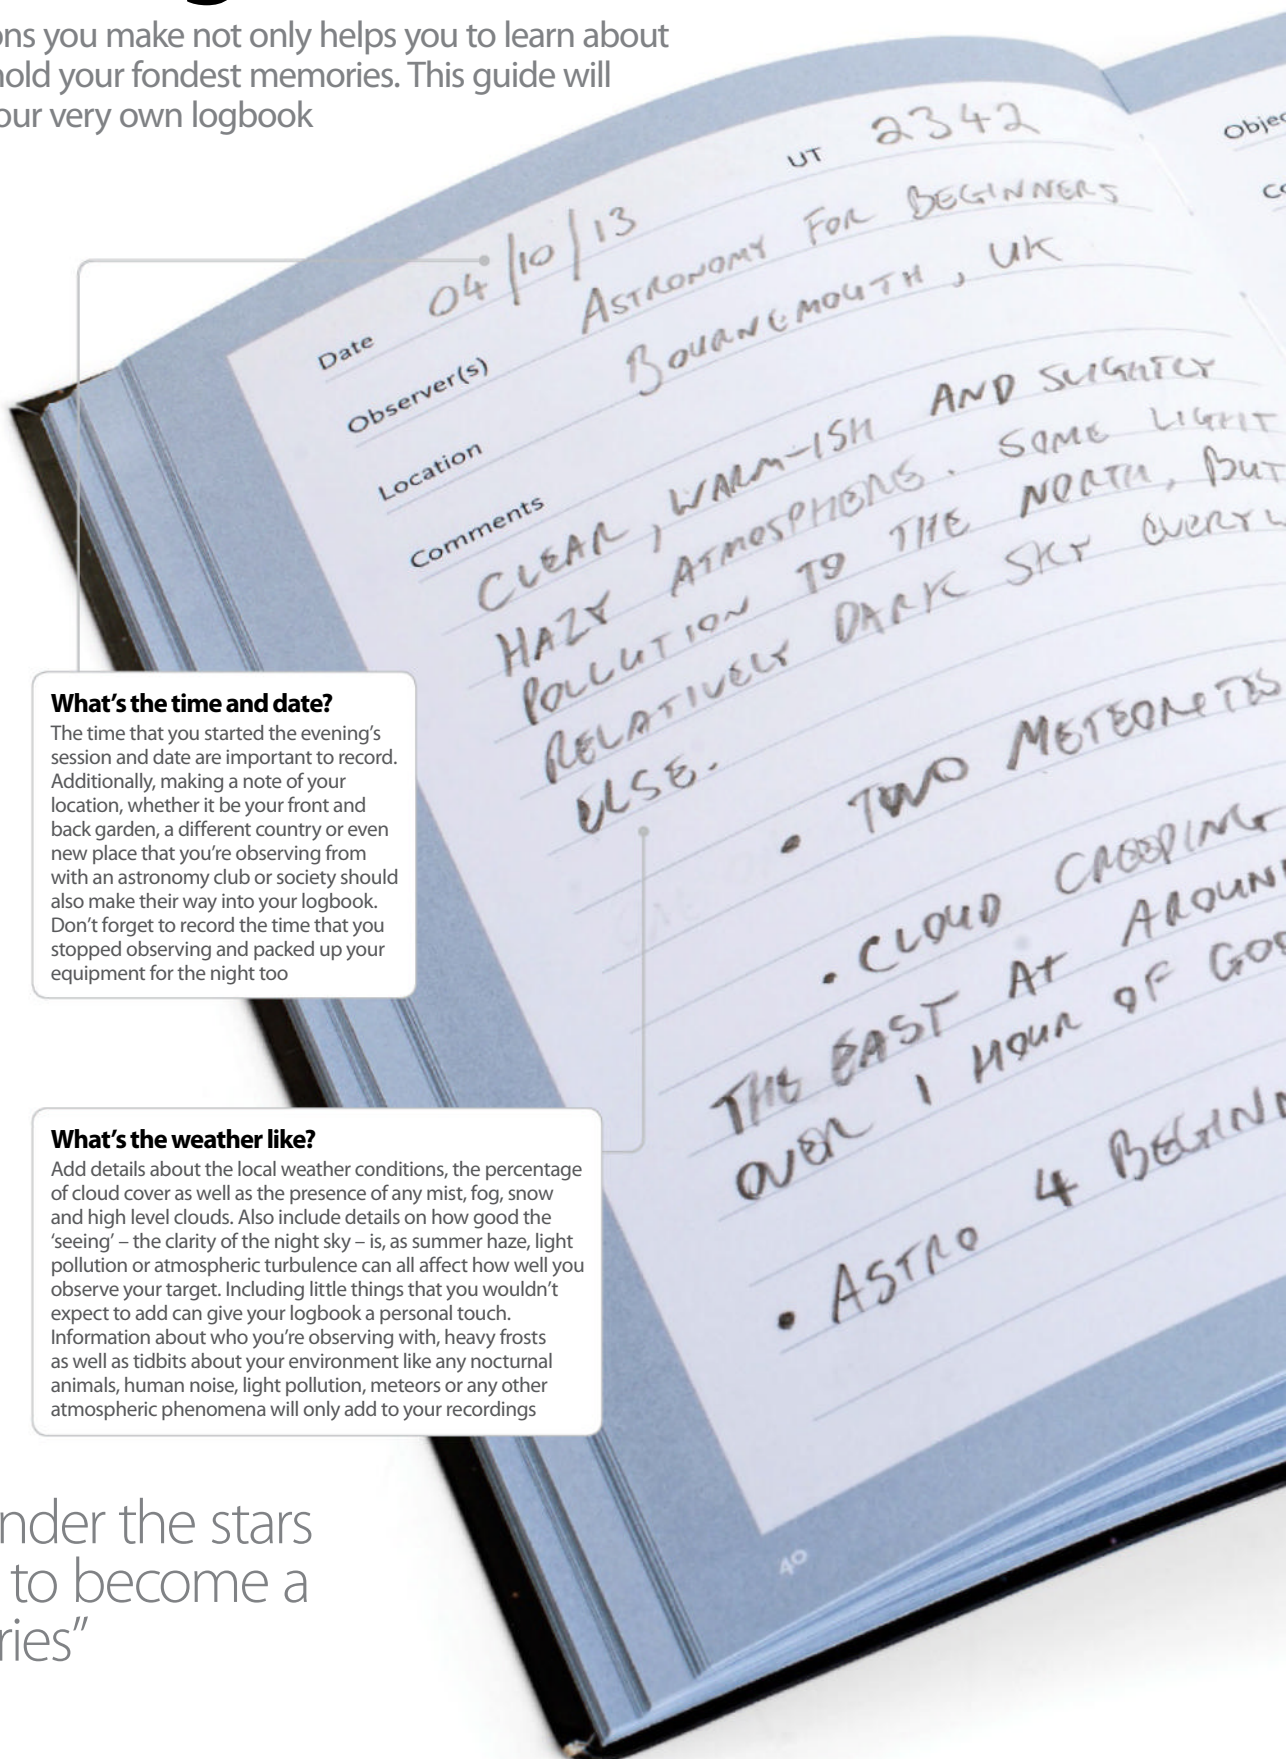 ons you make not only helps you to learn about
hold your fondest memories. This guide will
our very own logbook
UT 2342
Date 04/10/13
Observer(s) ASTRONOMY FOR BEGINNERS
Location BOURNEMOUTH, UK
Comments
CLEAR, WARM-ISH AND SLIGHTLY
HAZY ATMOSPHERE. SOME LIGHT
POLLUTION TO THE NORTH, BUT
RELATIVELY DARK SKY
ELSE.
• TWO METEORITES
• CLOUD CREEPING
THE EAST AT AROUN
OVER 1 HOUR OF GOO
• ASTRO 4 BEGINN
40
Objec
Co
What's the time and date?
The time that you started the evening's
session and date are important to record.
Additionally, making a note of your
location, whether it be your front and
back garden, a different country or even
new place that you're observing from
with an astronomy club or society should
also make their way into your logbook.
Don't forget to record the time that you
stopped observing and packed up your
equipment for the night too
What's the weather like?
Add details about the local weather conditions, the percentage
of cloud cover as well as the presence of any mist, fog, snow
and high level clouds. Also include details on how good the
‘seeing’ – the clarity of the night sky – is, as summer haze, light
pollution or atmospheric turbulence can all affect how well you
observe your target. Including little things that you wouldn't
expect to add can give your logbook a personal touch.
Information about who you're observing with, heavy frosts
as well as tidbits about your environment like any nocturnal
animals, human noise, light pollution, meteors or any other
atmospheric phenomena will only add to your recordings
nder the stars
to become a
ries”